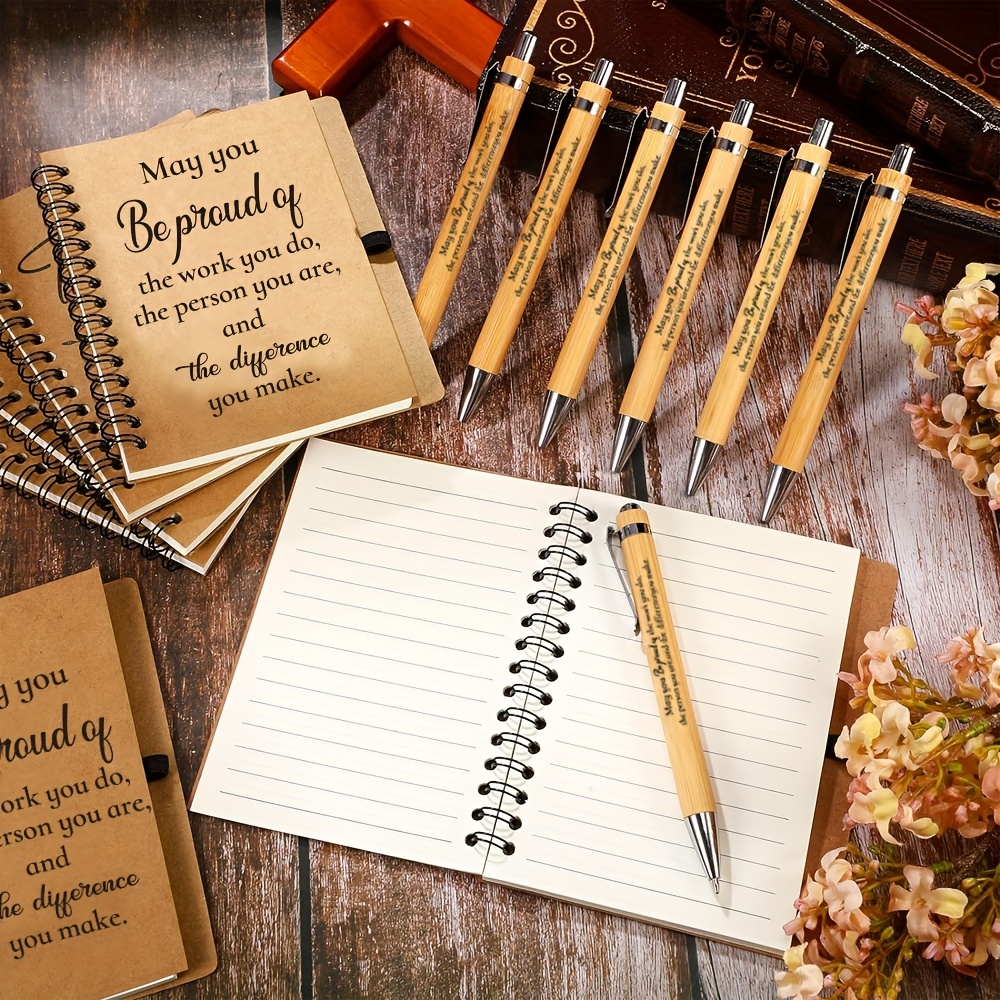 May you
Be proud of
the work you do,
the person you are,
and
the difference
you make.
May you Be proud of the work you do,
the person you are,and the difference you make
May you Be proud of the work you do,
the person you are,and the difference you make
May you Be proud of the work you do,
the person you are,and the difference you make
May you Be proud of the work you do,
the person you are,and the difference you make
May you Be proud of the work you do,
the person you are,and the difference you make
May you Be proud of the work you do,
the person you are,and the difference you make
May you Be proud of the work you do,
the person you are,and the difference you make
y you
roud of
ork you do,
erson you are,
and
he difference
you make.